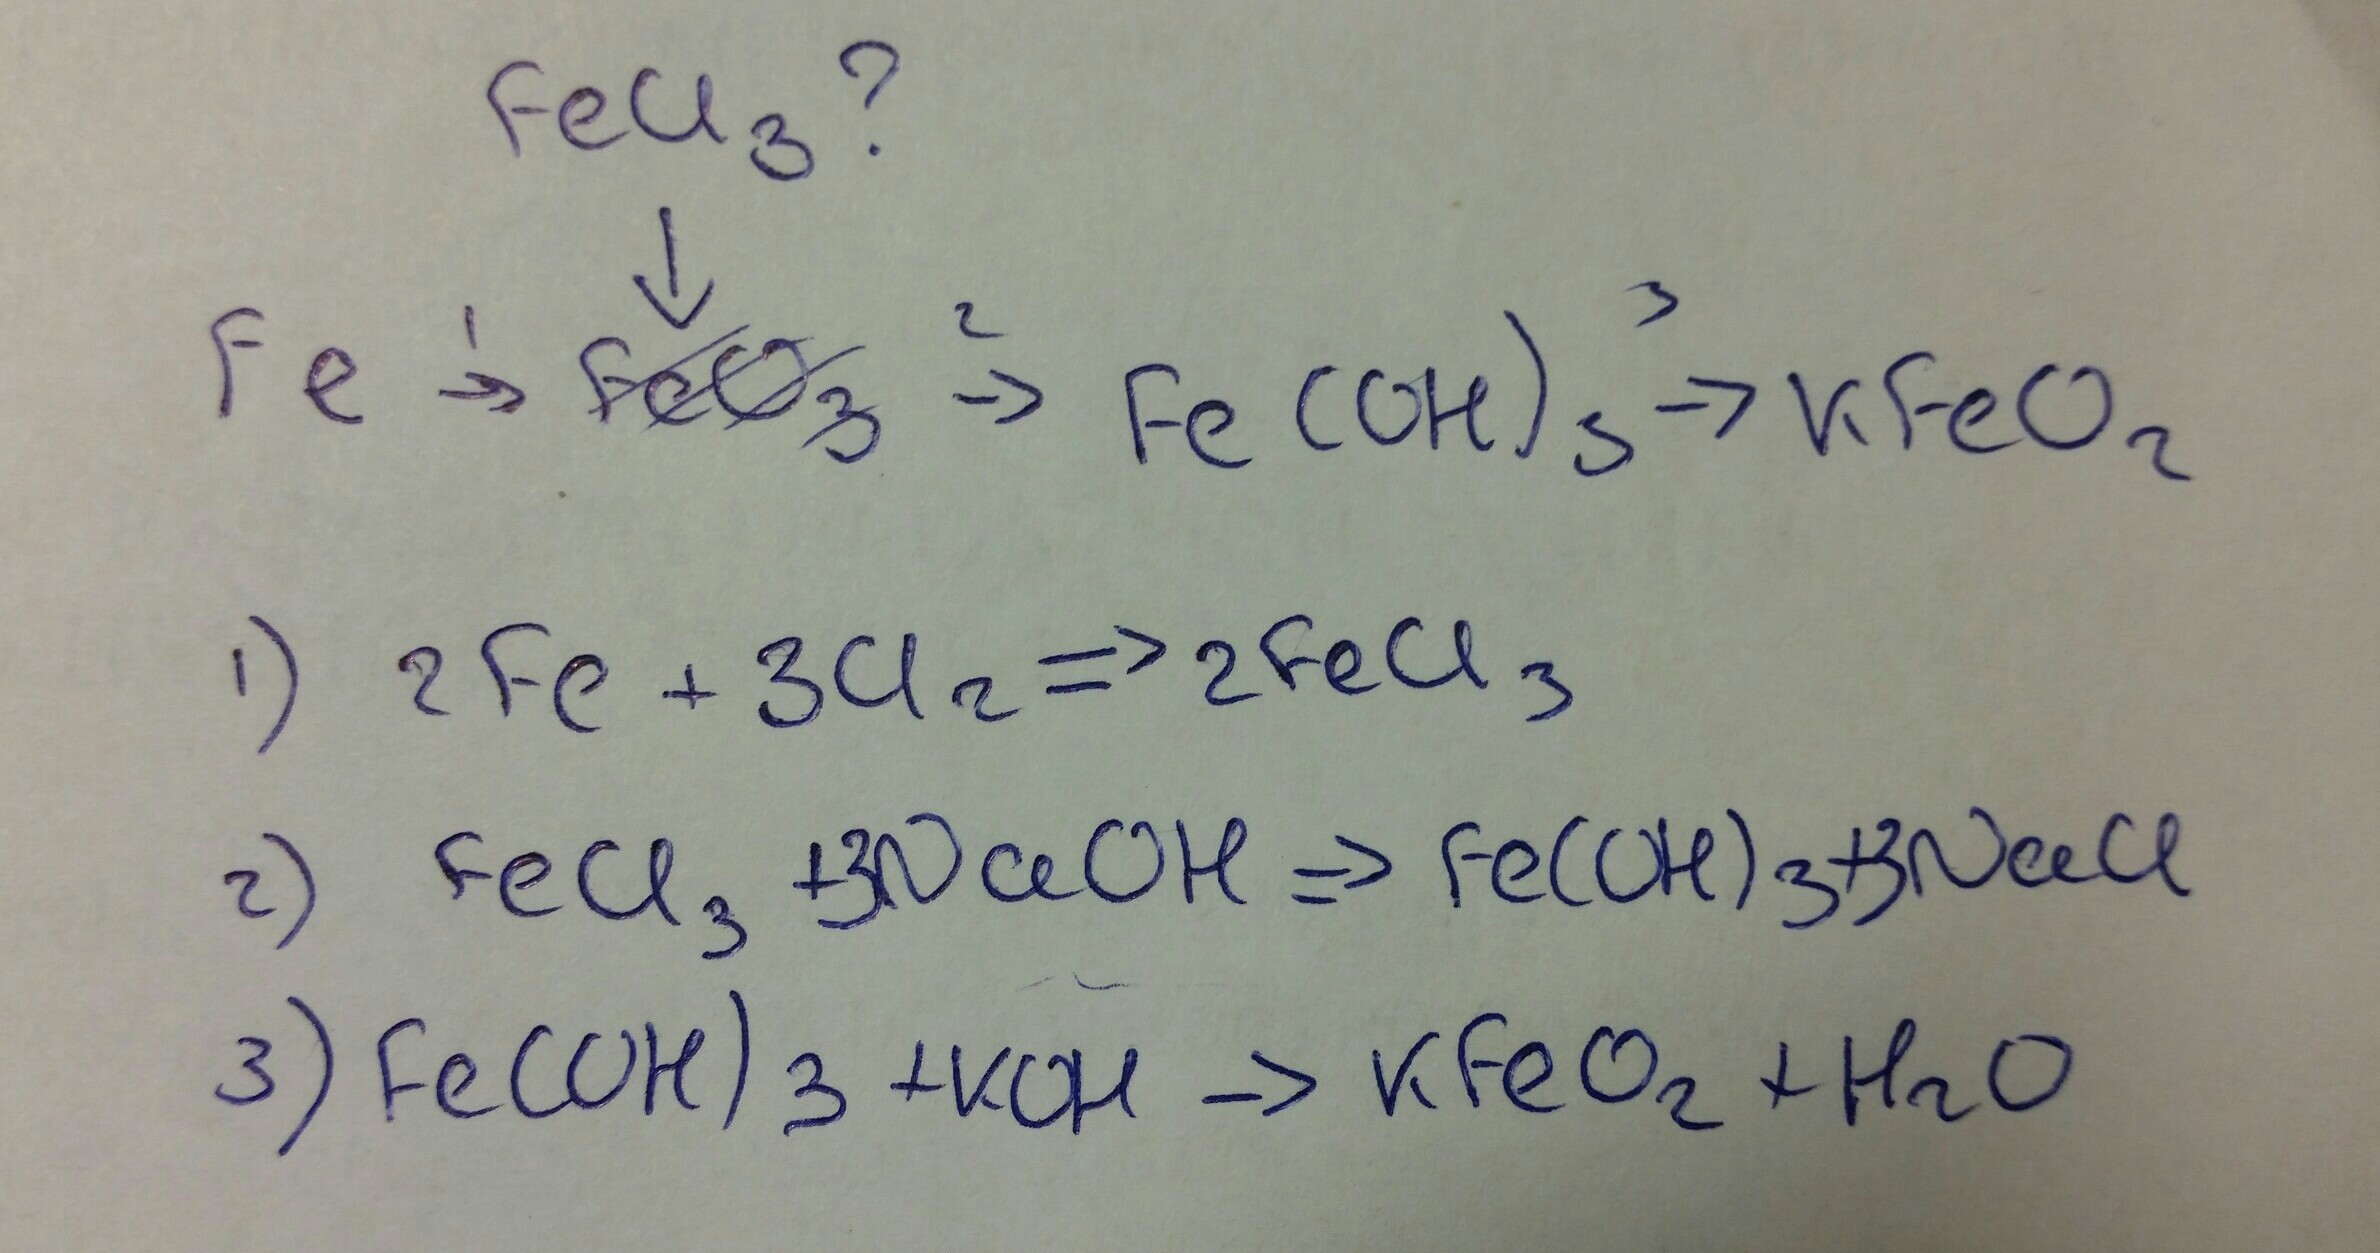 FeCl3?
↓
Fe →1 FeO3 →2 Fe(OH)3 →3 KFeO2
1) 2Fe + 3Cl2 => 2FeCl3
2) FeCl3 +3NaOH => Fe(OH)3+3NaCl
3) Fe(OH)3 +KOH -> KFeO2 + H2O